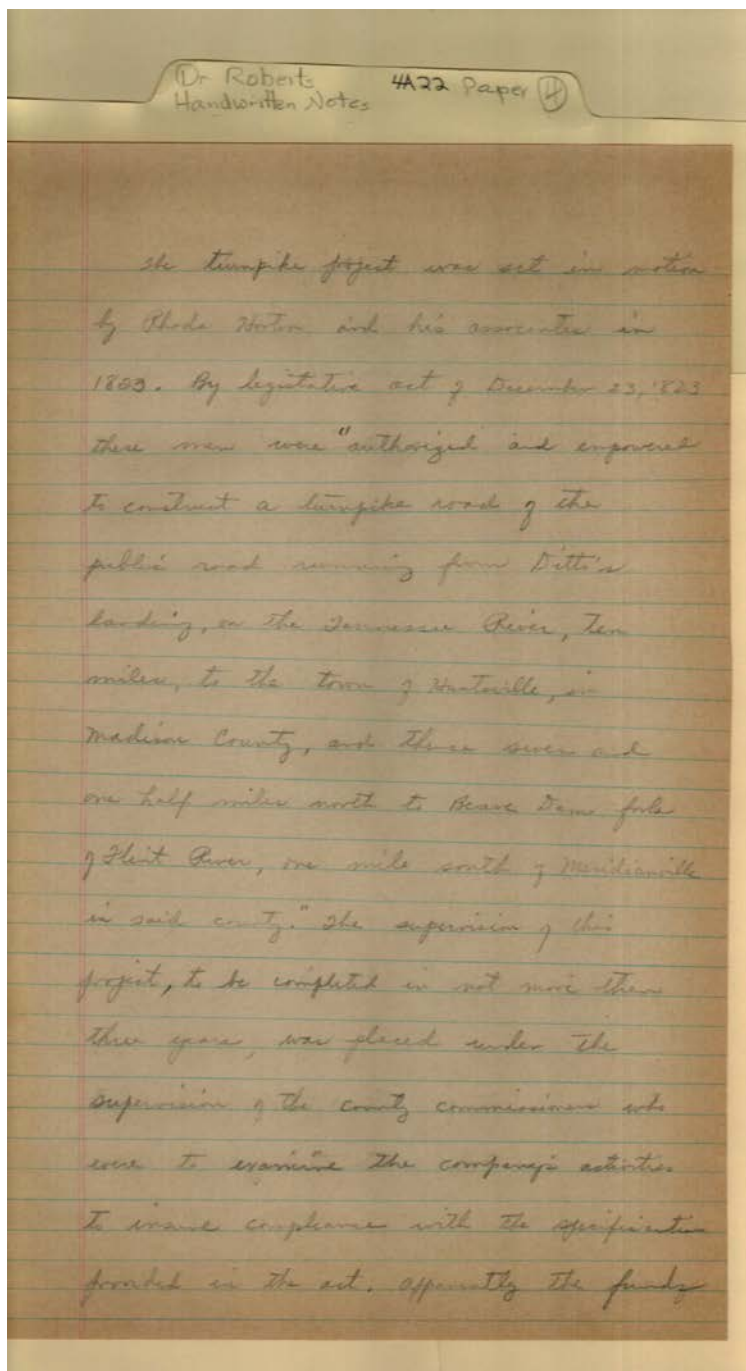 Dr Roberts 4A22 Paper 4
Handwritten Notes
The turnpike project was set in motion
by Rhoda Horton and his associates in
1823. By legistative act of December 23, 1823
these men were "authorized and empowered
to construct a turnpike road of the
public road running from Ditto's
landing, on the Tennessee River, ten
miles, to the town of Huntsville, in
Madison County, and thence seven and
one half miles north to Beave Dam fork
of Flint River, one mile south of Meridianville
in said county." The supervision of this
project, to be completed in not more then
three years, was placed under the
supervision of the county commissioners who
were to examine the company's activities
to insure compliance with the specification
provided in the act. Apparently the funds